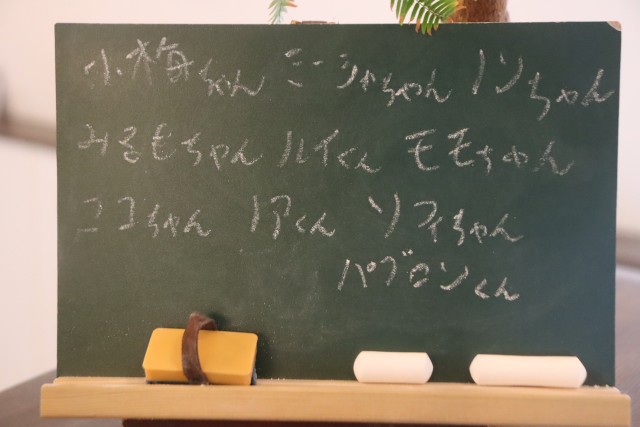 小梅ちゃん ミーシャちゃん ノンちゃん
みるもちゃん ルイくん モモちゃん
ココちゃん ノアくん ソフィちゃん
パブロンくん